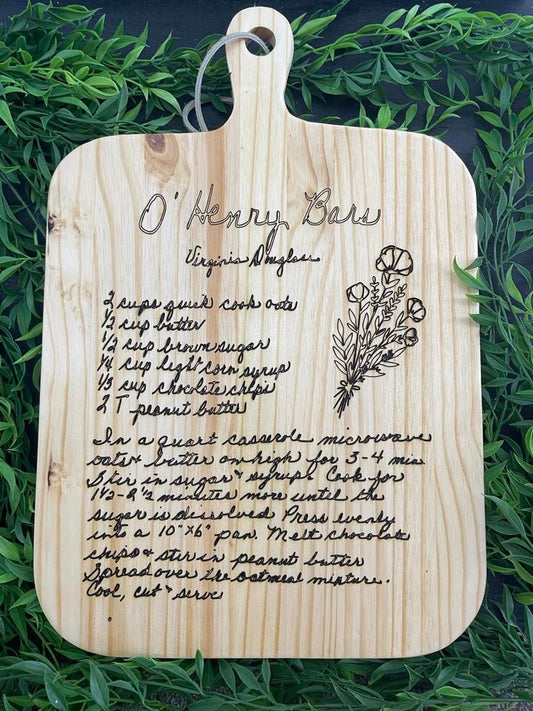 O'Henry Bars
Virginia Douglass
2 cups quick cook oats
1/2 cup butter
1/2 cup brown sugar
1/4 cup light corn syrup
1/3 cup chocolate chips
2 T peanut butter
In a quart casserole microwave
oats & butter on high for 3-4 min.
Stir in sugar & syrup. Cook for
1 1/2-2 1/2 minutes more until the
sugar is dissolved Press evenly
into a 10" x 6" pan. Melt chocolate
chips & stir in peanut butter
Spread over the oatmeal mixture.
Cool, cut & serve